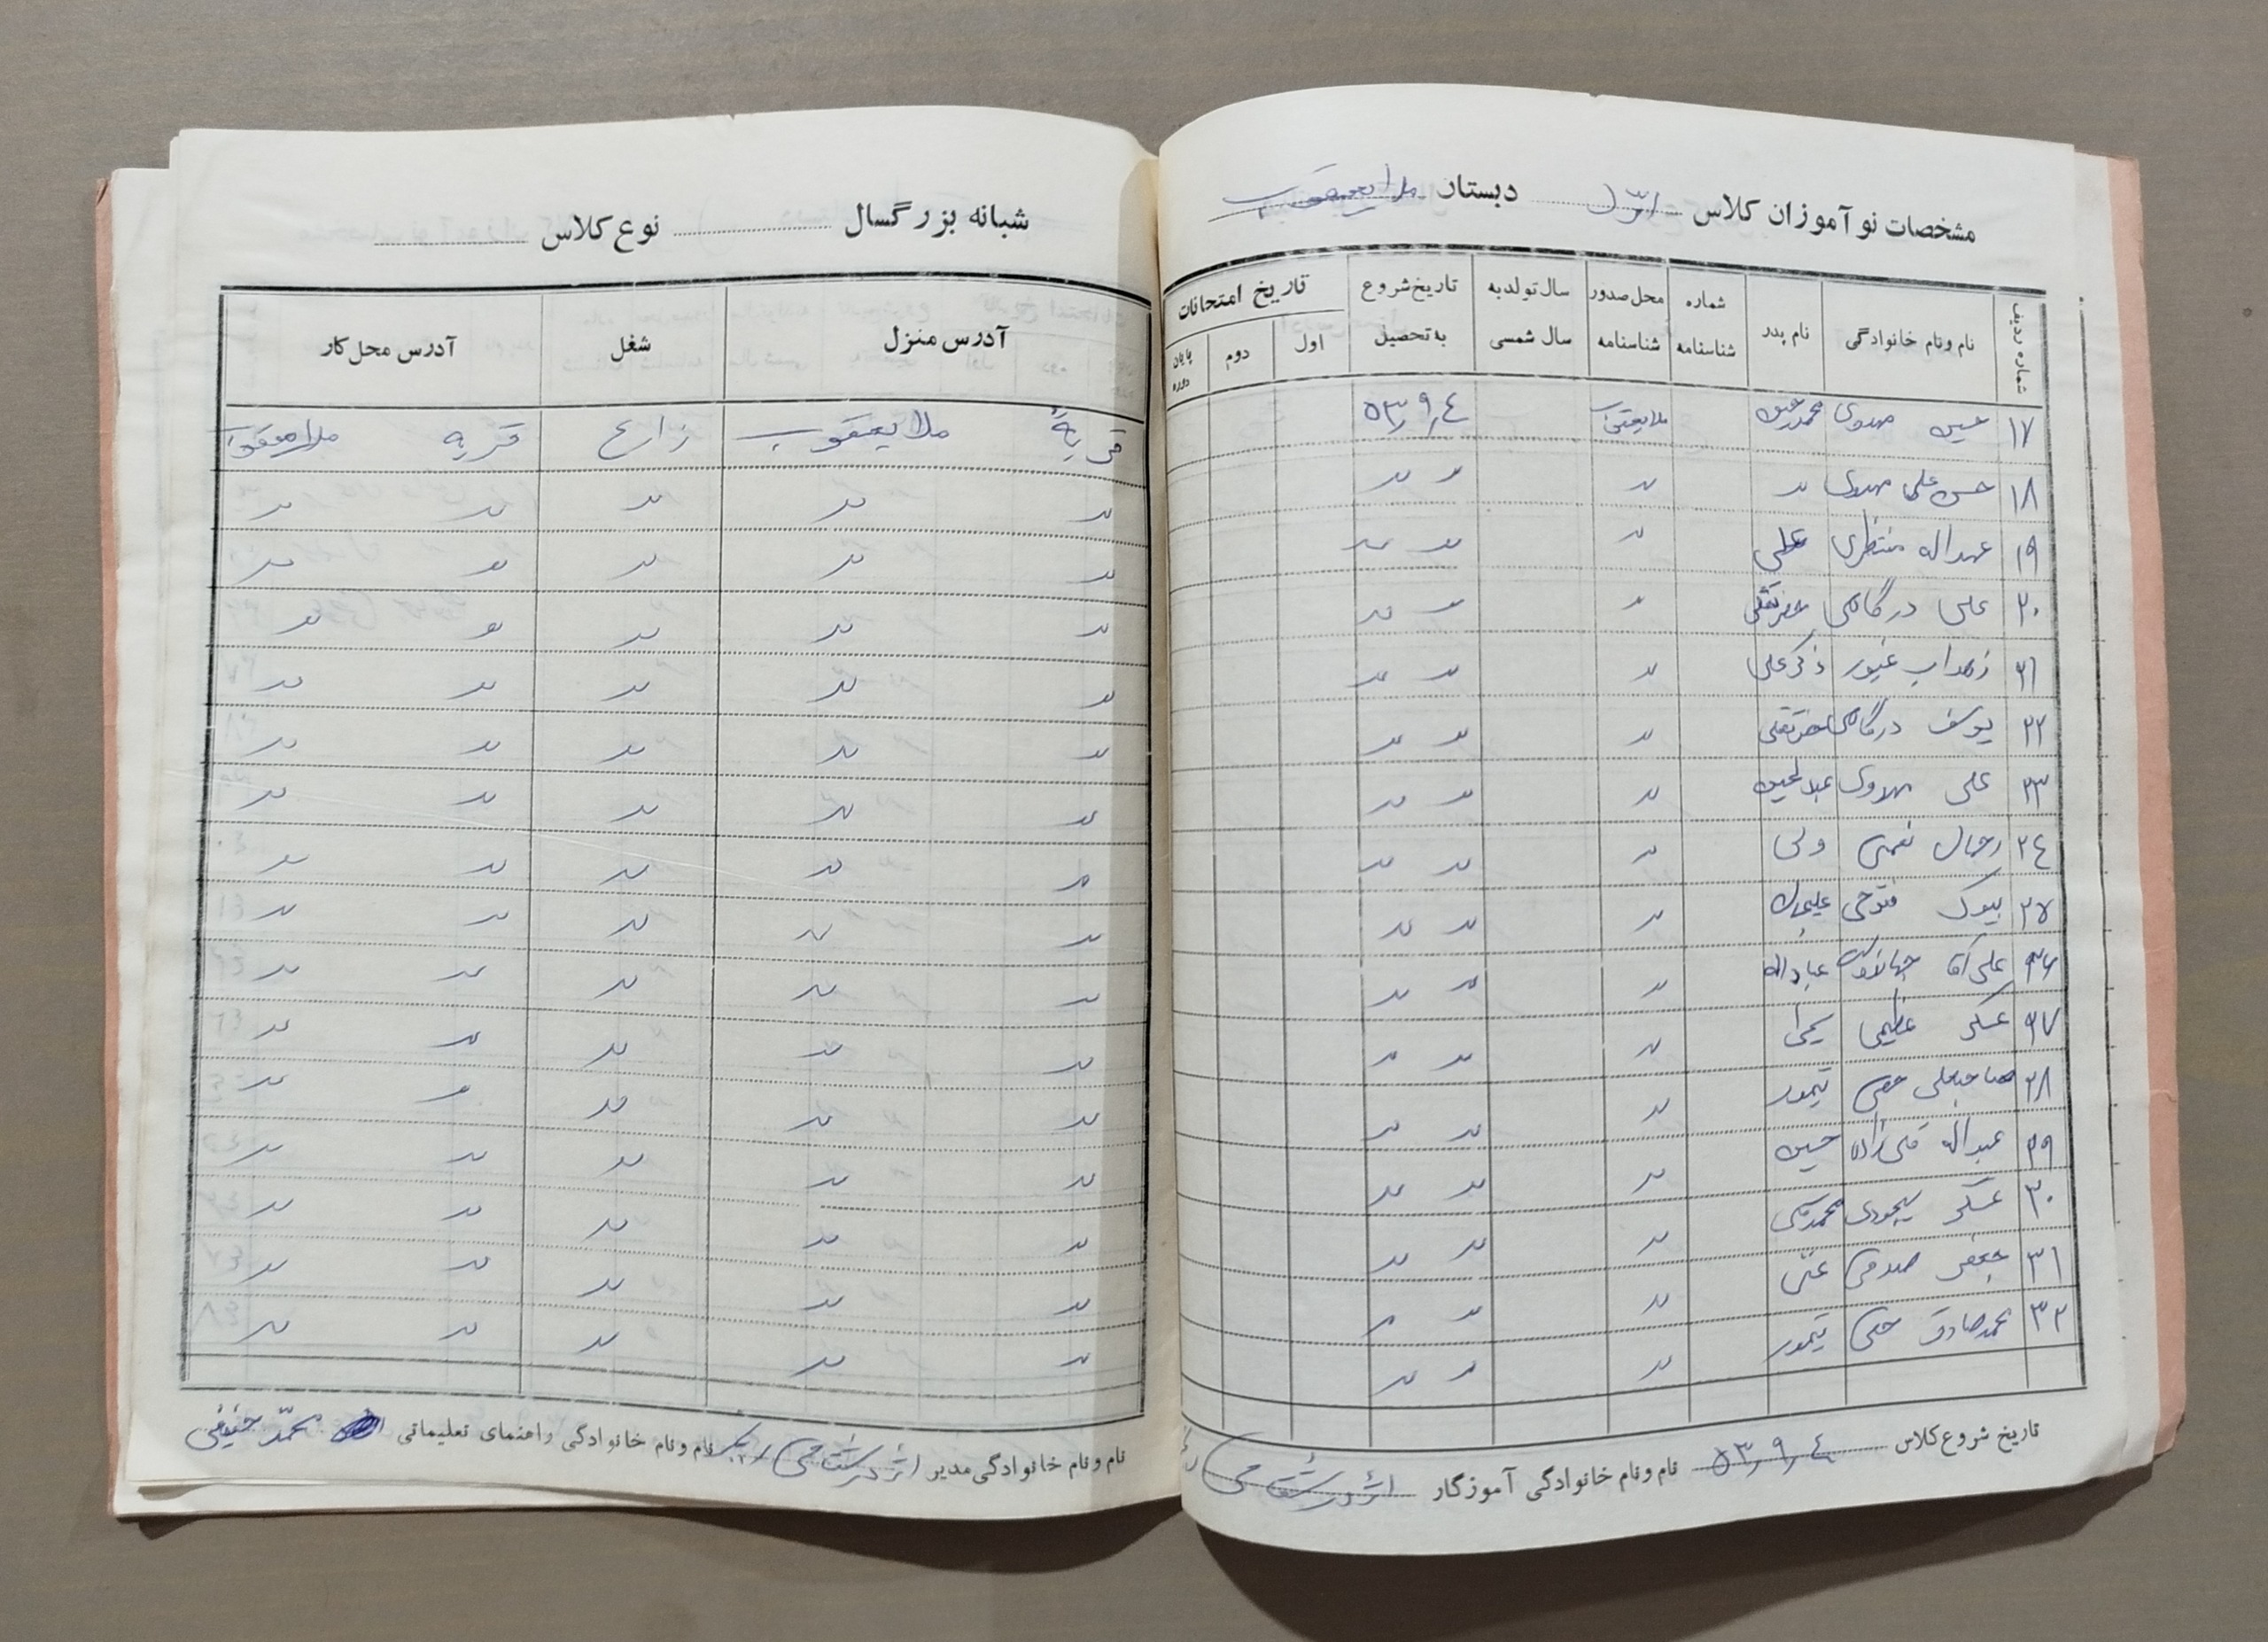 مشخصات نو آموزان کلاس اوّل دبستان ملا یعقوب
شماره ردیف نام ونام خانوادگی نام پدر شماره شناسنامه محل صدور شناسنامه سال تولد به سال شمسی تاریخ شروع به تحصیل تاریخ امتحانات
اول دوم پایان دوره
۱۷ حسین مهدوی محمد حسین ملا یعقوب ۵۳٫۹٫٤
۱۸ حسن علی مهدوی 〃 〃 〃 〃
۱۹ عبداله منتظری علی 〃 〃 〃
۲۰ علی درگاهی حضرتقلی 〃 〃 〃
۲۱ زهراب غیور ذکرعلی 〃 〃 〃
۲۲ یوسف درگاهی حضرتقلی 〃 〃 〃
۲۳ علی مهدوی عبدالحسین 〃 〃 〃
۲٤ رجال نعمتی ولی 〃 〃 〃
۲۵ بیوک فتوحی علیجان 〃 〃 〃
۲۶ علی آقا عباداله 〃 〃 〃
۲۷ عسکر عظیمی یحیی 〃 〃 〃
۲۸ صاحبعلی حقی تیمور 〃 〃 〃
۲۹ عبداله قلی زاده حسین 〃 〃 〃
۳۰ عسکر محمدتقی 〃 〃 〃
۳۱ جعفر صدقی 〃 〃 〃
۳۲ محمدصادق حقی تیمور 〃 〃 〃
تاریخ شروع کلاس ۵۳٫۹٫٤ نام ونام خانوادگی آموزگار اژدر
شبانه بزرگسال نوع کلاس
آدرس منزل شغل آدرس محل کار
قریهٔ ملا یعقوب زارع قریه ملا یعقوب
〃 〃 〃 〃 〃
〃 〃 〃 〃 〃
〃 〃 〃 〃 〃
〃 〃 〃 〃 〃
〃 〃 〃 〃 〃
〃 〃 〃 〃 〃
〃 〃 〃 〃 〃
〃 〃 〃 〃 〃
〃 〃 〃 〃 〃
〃 〃 〃 〃 〃
〃 〃 〃 〃 〃
〃 〃 〃 〃 〃
〃 〃 〃 〃 〃
〃 〃 〃 〃 〃
〃 〃 〃 〃 〃
نام ونام خانوادگی مدیر اژدر نام ونام خانوادگی راهنمای تعلیماتی محمّد حنیفی